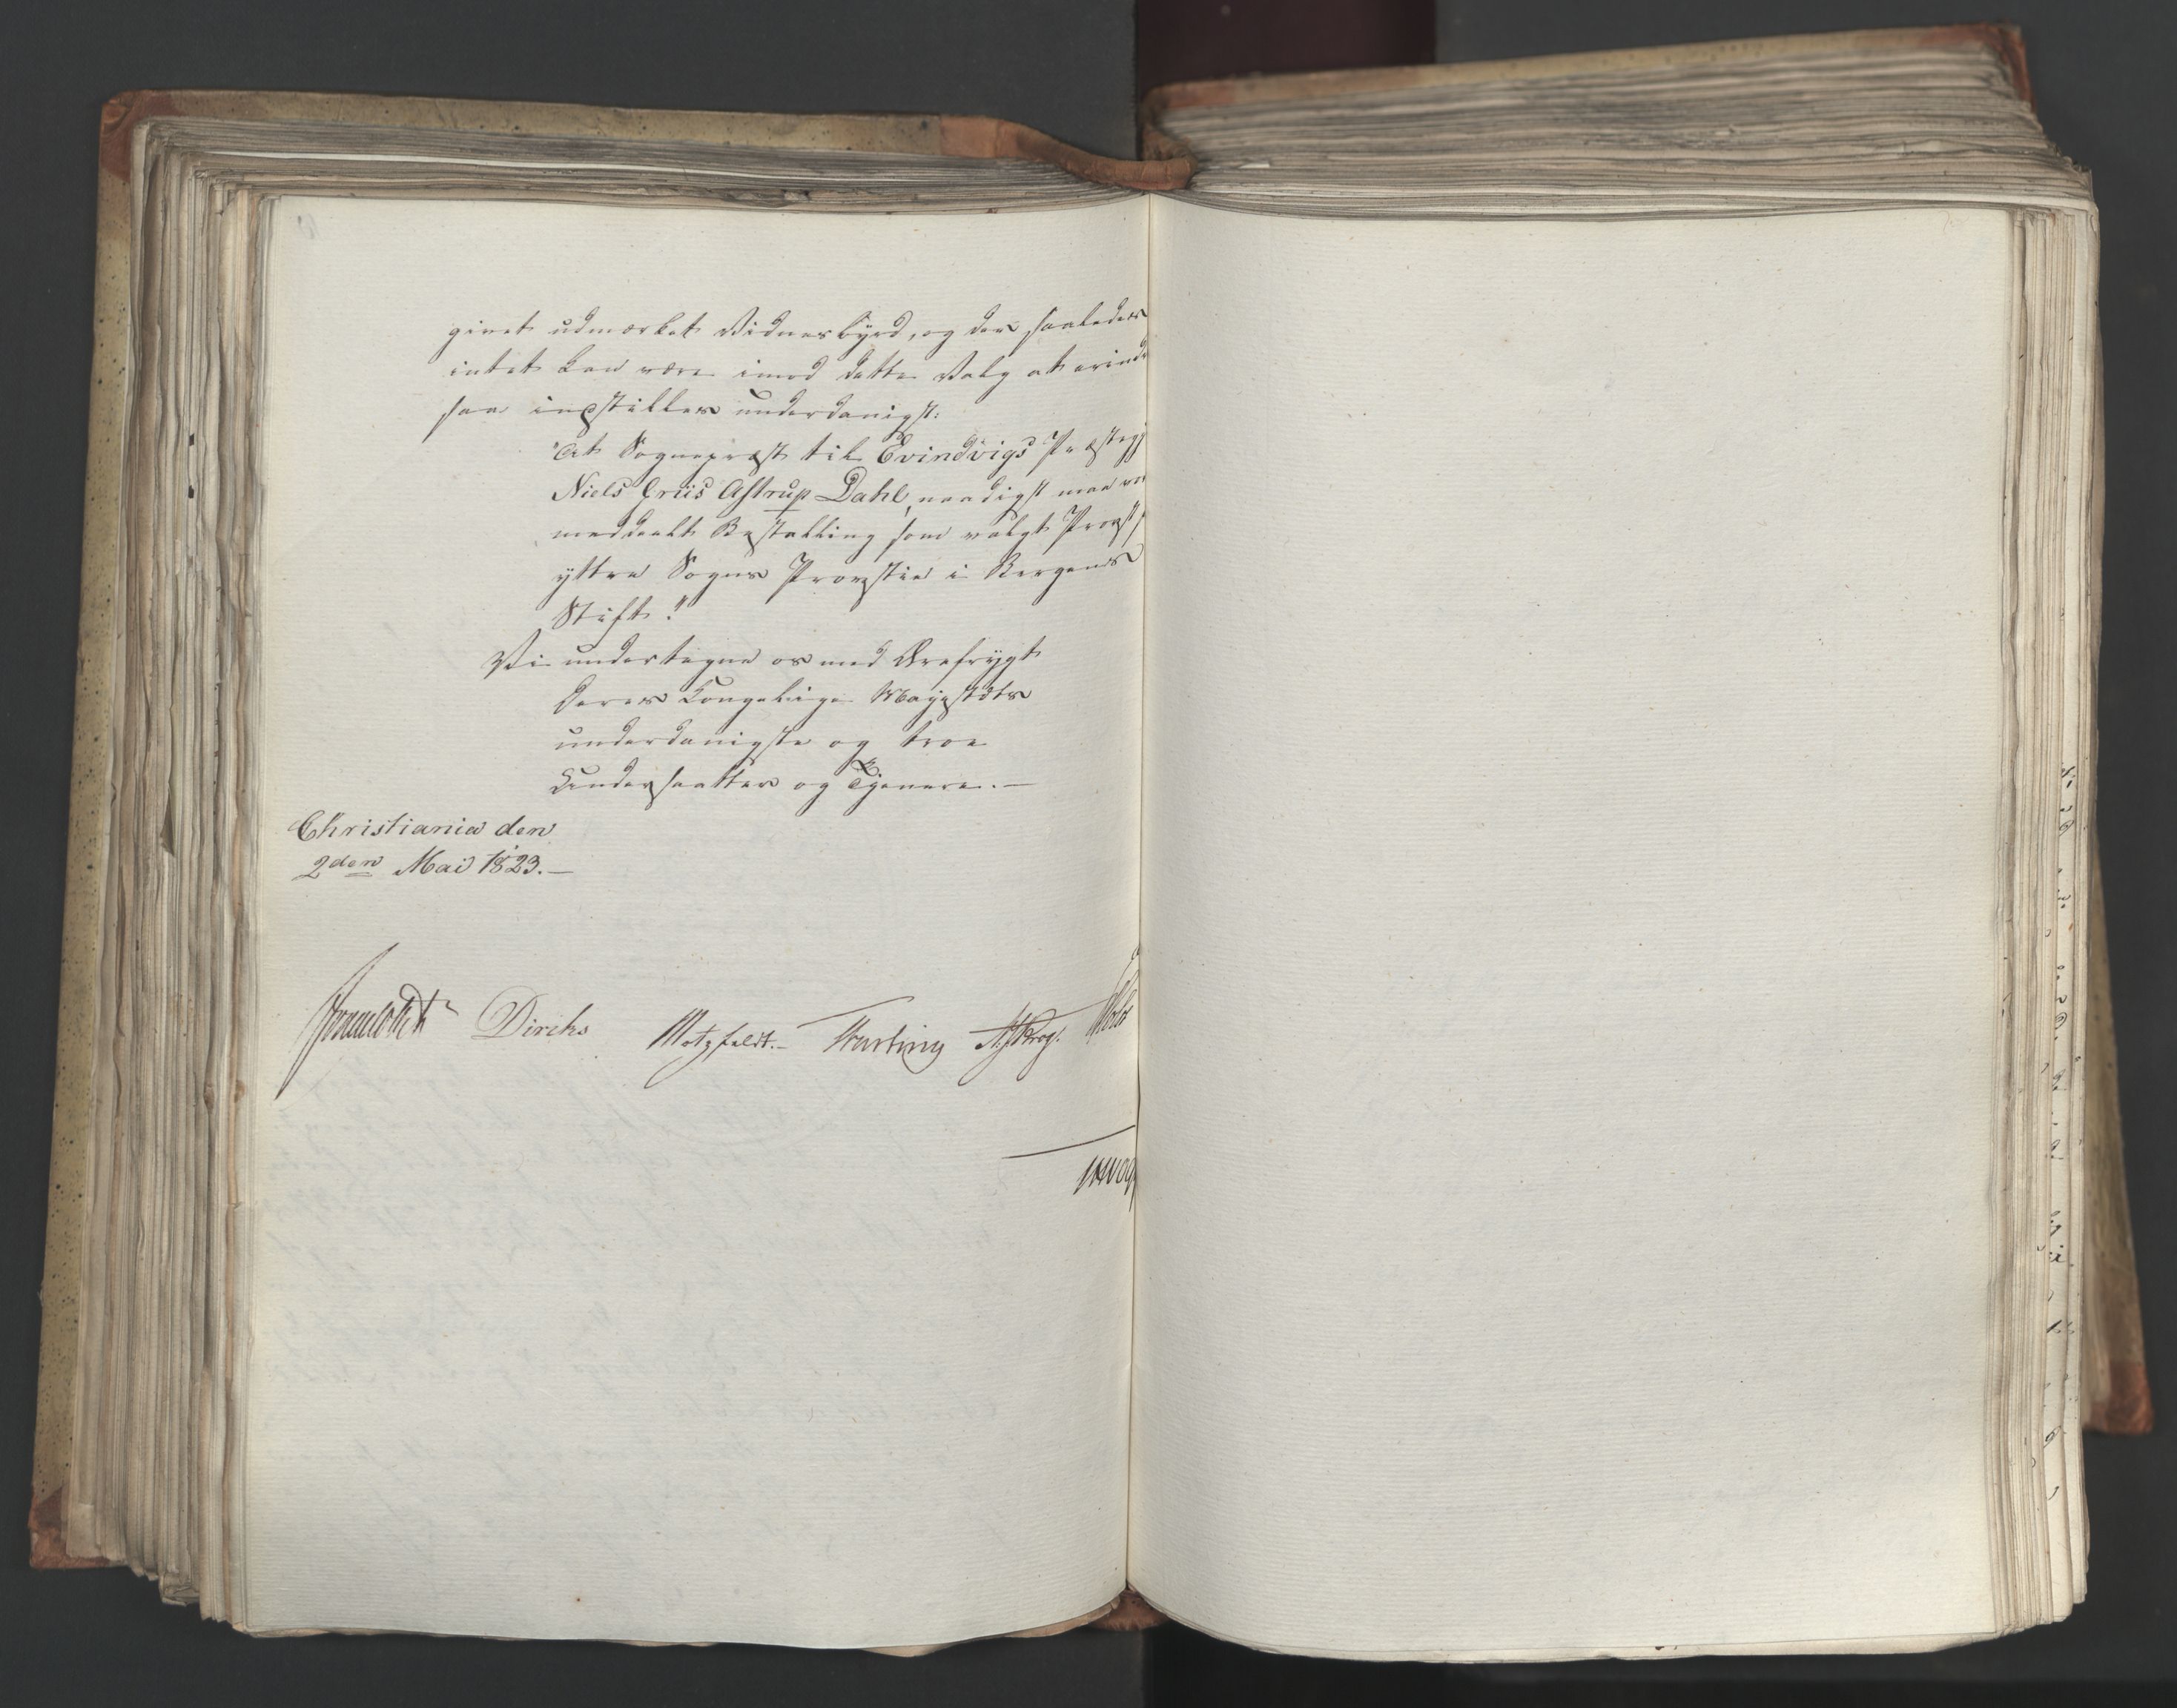 givet udmærket Vidnesbyrd, og der saaledes
intet kan være imod dette Valg at erind
saa indstilles underdanigst:
"At Sognepræst til Evindvigs Præstegj
Niels Griis Astrup Dahl, naadigst maa vor
meddeelt Bestalling som valgt Provst
yttre Sogns Provstie i Bergens
Stift."
Vi undertegne os med Ærefrygt
Deres Kongelige Majestæts
underdanigste og troe
Undersaatter og Tjenere. —
Christiania den
2den Mai 1823. —
Diriks Motzfeldt. — Treschow